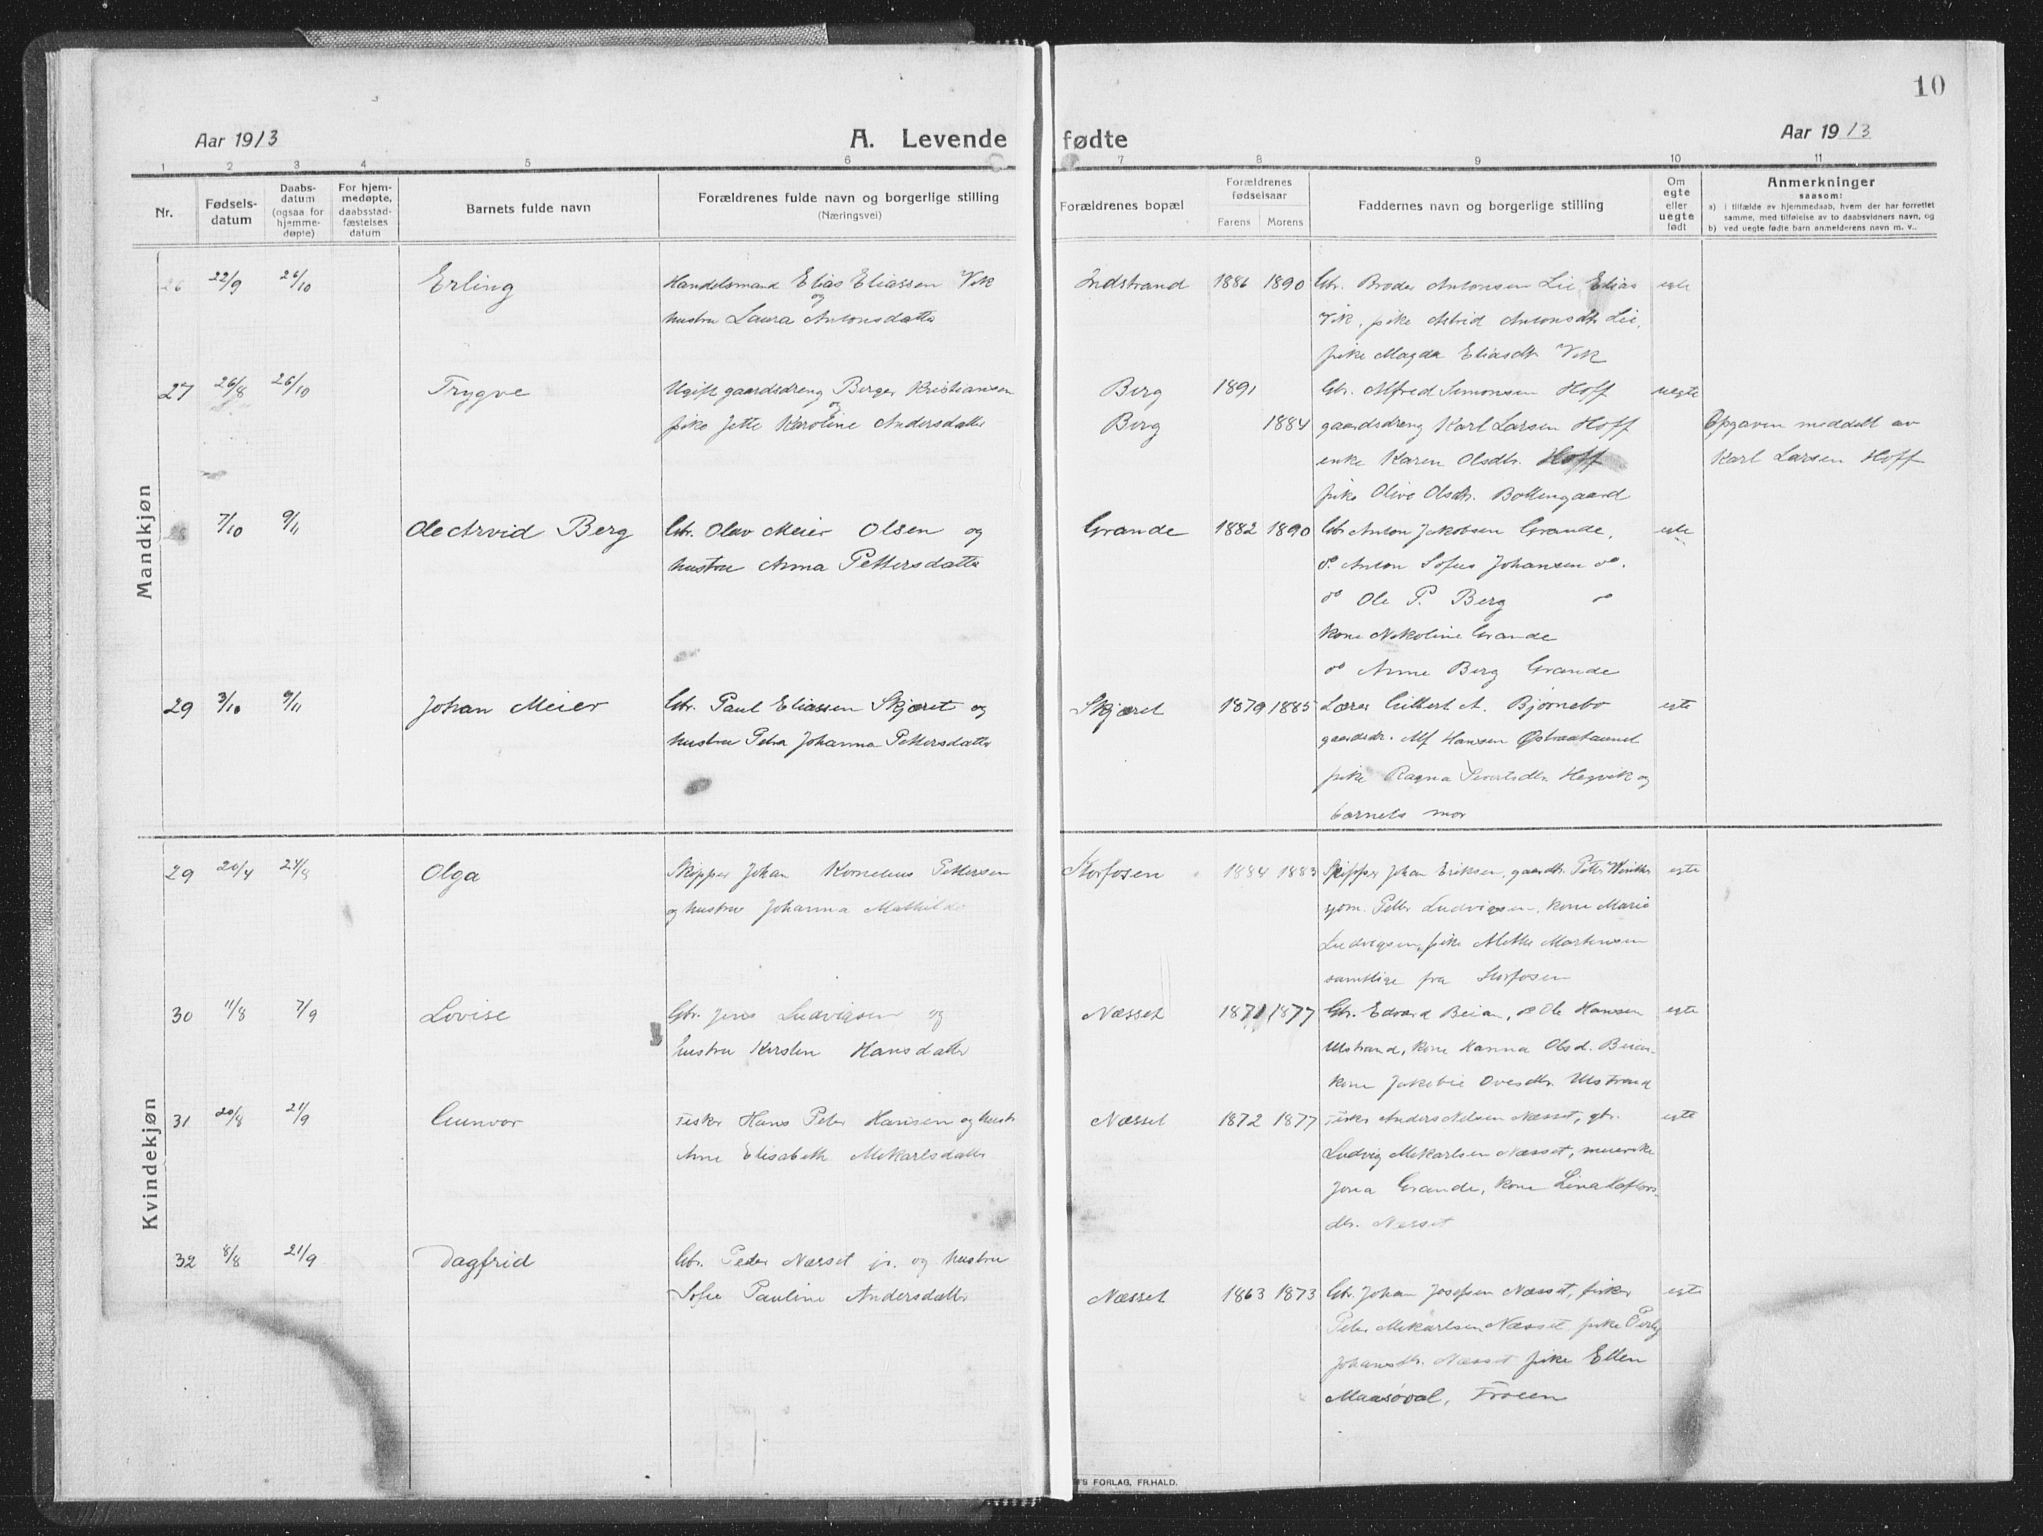 10
Aar 1913
A. Levende fødte
Aar 1913
1 2 3 4 5 6 7 8 9 10 11
Nr.
Fødsels-
datum
Daabs-
datum
(ogsaa for
hjemme-
døpte)
For hjem-
medøpte,
daabsstad-
fæstelses
datum
Barnets fulde navn
Forældrenes fulde navn og borgerlige stilling
(Næringsvei)
Forældrenes bopæl
Forældrenes
fødselsaar
Farens Morens
Faddernes navn og borgerlige stilling
Om
egte
eller
uegte
født
Anmerkninger
saasom:
a) i tilfælde av hjemmedaab, hvem der har forrettet
samme, med tilføielse av to daabsvidners navn, og
b) ved uegte fødte barn anmelderens navn m. v..
Mandkjøn
26 22/9 26/10 Erling Handelsmand Elias Eliassen Vik
og
hustru Laura Antonsdatter
Indstrand 1886 1890 Gbr. Broder Antonsen Lie Elias egte
Vik, pike Astrid Antonsdtr Lie,
pike Magda Eliasdtr Vik
27 26/8 26/10 Trygve Ugift gaardsdreng Berger Kristiansen
og
pike Jette Karoline Andersdatter
Berg 1891 Gbr. Alfred Simonsen Hoff uegte
Berg 1884 gaardsdreng Karl Larsen Hoff Opgaven meddelt av
enke Karen Olsdtr. Hoff Karl Larsen Hoff
pike Olive Olsdtr. Bottengaard
7/10 9/11 Ole Arvid Berg Gbr. Olav Meier Olsen og
hustru Anna Pettersdatter
Grande 1882 1890 Gbr Anton Jakobsen Grande, egte
Anton Sofus Johansen do.
do Ole P. Berg do
Kone Nikoline Grande
do Anne Berg Grande
29 3/10 9/11 Johan Meier Gbr. Paul Eliassen Skjæret og
hustru Petra Johanna Pettersdatter
Skjæret 1879 1885 Lærer Gilbert A. Bjørnebo egte
gaardsdr. Alf Hansen Østraataunet
pike Ragna Sivertsdtr. Hegvik og
barnets mor
Kvindekjøn
29 20/4 24/8 Olga Skipper Johan Kornelius Pettersen
og hustru Johanna Mathilde
Storfosen 1884 1883 Skipper Johan Eriksen, gaardbr. Petter Winther egte
sjøm. Petter Ludvigsen, kone Marie
Ludvigsen, pike Alette Martinsen
samtlige fra Storfosen
30 11/8 7/9 Lovise Gbr. Jens Ludvigsen og
hustru Kirsten Hansdatter
Næsset 1871 1877 Gbr. Edvard Beian, do Ole Hansen egte
Ulstrand, kone Hanna Olsd. Beian
kone Jakobie Ovesdtr. Ulstrand
31 20/8 21/9 Gunvor Fisker Hans Peter Hansen og hustr.
Ane Elisabeth Mikarlsdatter
Næsset 1872 1877 Fisker Anders Nilsen Næsset, gbr. egte
Ludvig Mikarlsen Næsset, meierske
Jona Grande, kone Lina
dtr. Næsset
32 8/8 21/9 Dagfrid Gbr. Peder Næsset jr. og hustru
Sofie Pauline Andersdatter
Næsset 1863 1873 Gbr. Johan Josefsen Næsset, fisker egte
Peter Mikarlsen Næsset, pike
Johansdtr. Næsset pike Ellen
Maasøval, Frøien
'S FORLAG, FR.HALD.